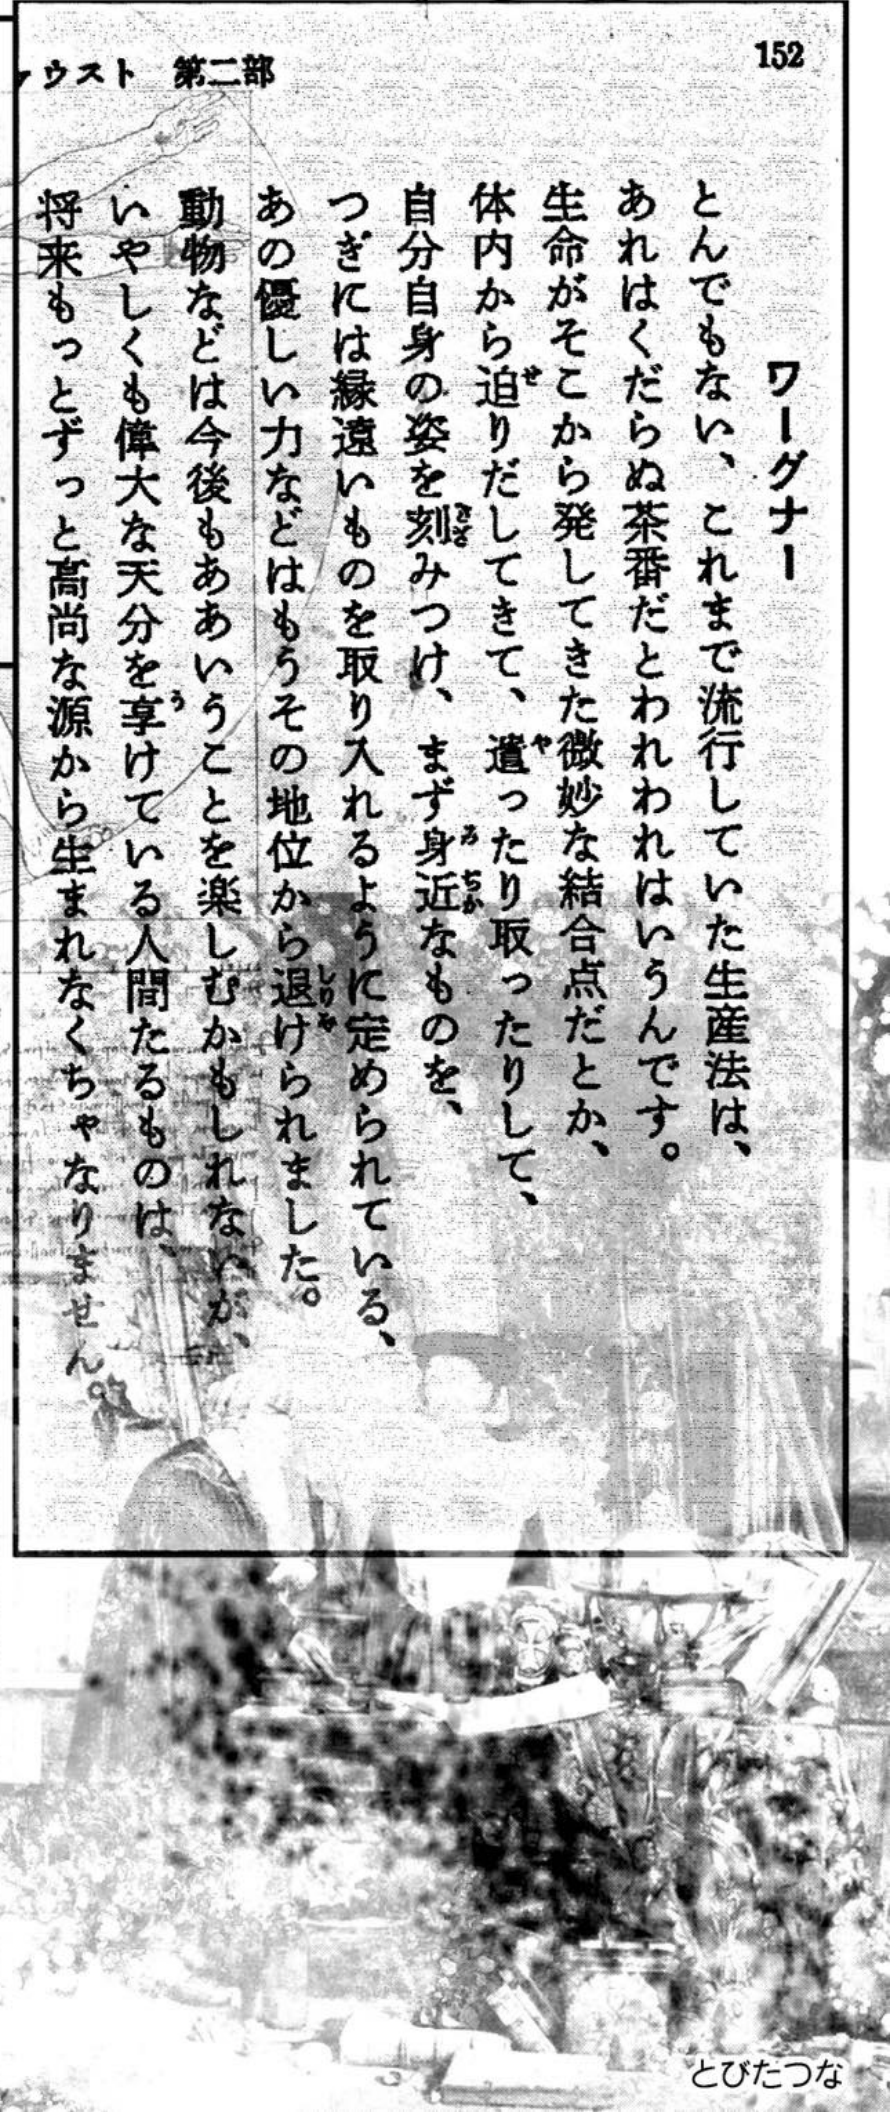 152
ァウスト 第二部
ワーグナー
とんでもない、これまで流行していた生産法は、
あれはくだらぬ茶番だとわれわれはいうんです。
生命がそこから発してきた微妙な結合点だとか、
体内から迫りだしてきて、遣ったり取ったりして、
自分自身の姿を刻みつけ、まず身近なものを、
つぎには縁遠いものを取り入れるように定められている、
あの優しい力などはもうその地位から退けられました。
動物などは今後もああいうことを楽しむかもしれないが、
いやしくも偉大な天分を享けている人間たるものは、
将来もっとずっと高尚な源から生まれなくちゃなりません。
とびたつな